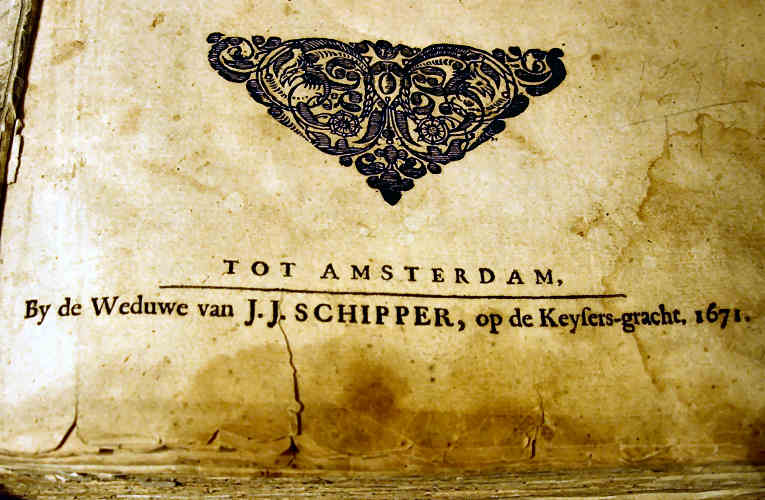 TOT AMSTERDAM,
By de Weduwe van J. J. SCHIPPER, op de Keyſers-gracht, 1671.